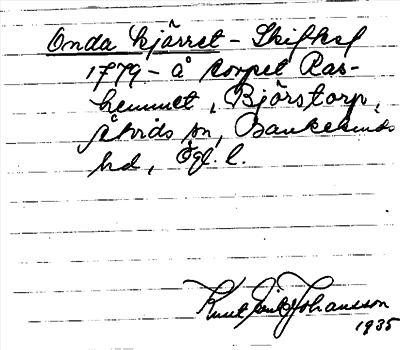 Onda kjärret - Skifksl
1779 - å torpet Ras-
hemmet, Björstorp,
Åtvids sn, Bankekinds
hd, Ögl. l.
Knut Johansson
1935